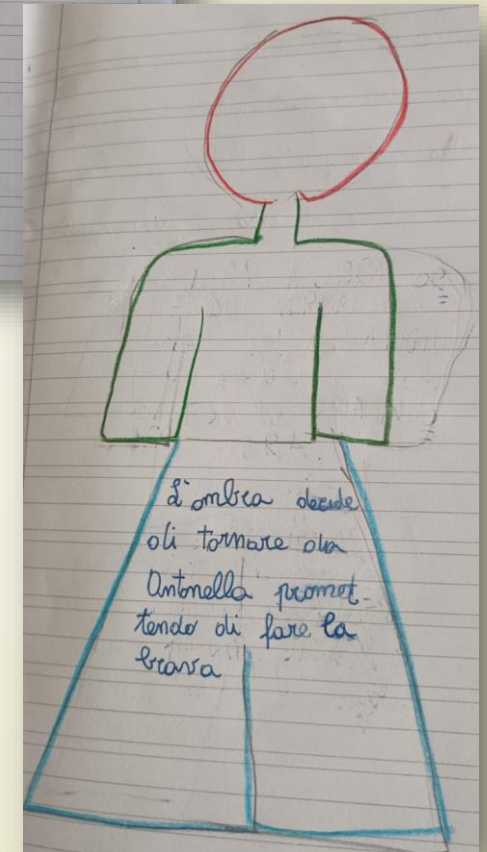 L'ombra decide
di tornare da
Antonella promet-
tendo di fare la
brava